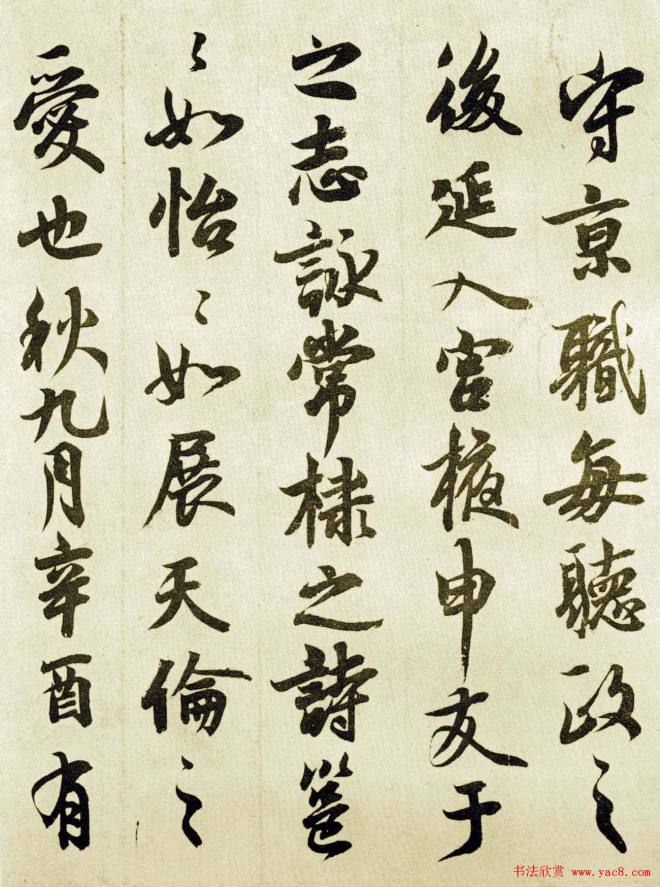 守京職每聽政之
後延入宮掖申友于
之志詠常棣之詩邕
〻如怡〻如展天倫之
愛也秋九月辛酉有
书法欣赏 www.yac8.com